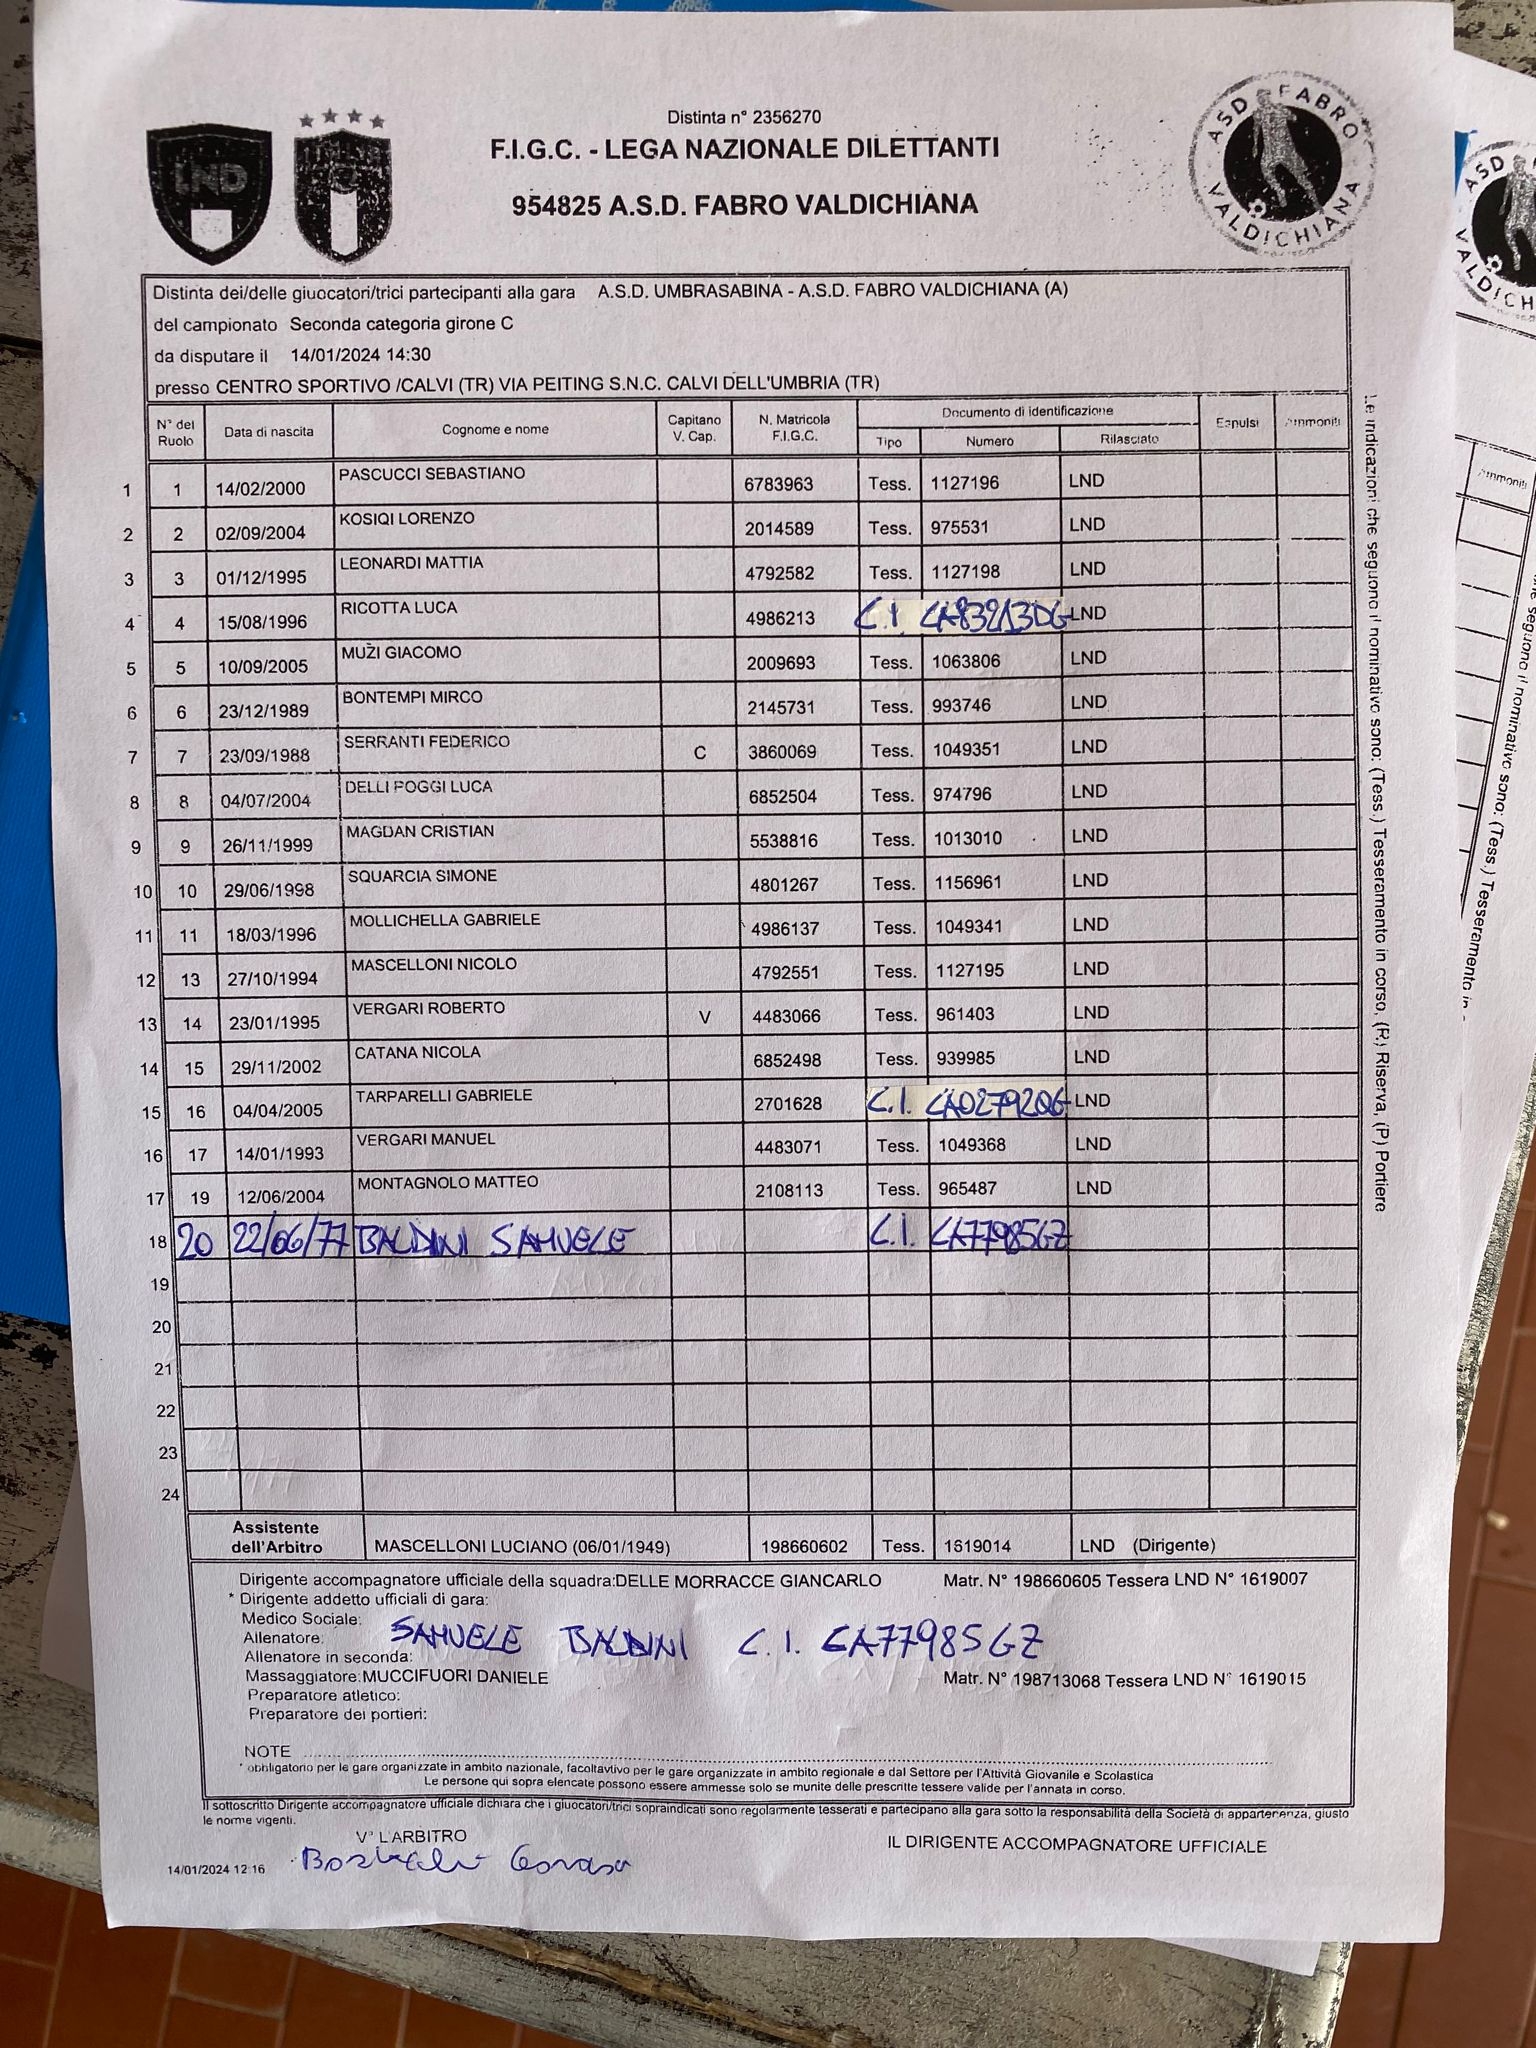 LND
ASD FABRO VALDICHIANA
Distinta n° 2356270
F.I.G.C. - LEGA NAZIONALE DILETTANTI
954825 A.S.D. FABRO VALDICHIANA
Distinta dei/delle giuocatori/trici partecipanti alla gara A.S.D. UMBRASABINA - A.S.D. FABRO VALDICHIANA (A)
del campionato Seconda categoria girone C
da disputare il 14/01/2024 14:30
presso CENTRO SPORTIVO /CALVI (TR) VIA PEITING S.N.C. CALVI DELL'UMBRIA (TR)
N° del Ruolo Data di nascita Cognome e nome Capitano V. Cap. N. Matricola F.I.G.C. Documento di identificazione Espulsi Ammoniti
Tipo Numero Rilasciato
1 1 14/02/2000 PASCUCCI SEBASTIANO 6783963 Tess. 1127196 LND
2 2 02/09/2004 KOSIQI LORENZO 2014589 Tess. 975531 LND
3 3 01/12/1995 LEONARDI MATTIA 4792582 Tess. 1127198 LND
4 4 15/08/1996 RICOTTA LUCA 4986213 C.I. CA83213DG LND
5 5 10/09/2005 MUŽI GIACOMO 2009693 Tess. 1063806 LND
6 6 23/12/1989 BONTEMPI MIRCO 2145731 Tess. 993746 LND
7 7 23/09/1988 SERRANTI FEDERICO C 3860069 Tess. 1049351 LND
8 8 04/07/2004 DELLI POGGI LUCA 6852504 Tess. 974796 LND
9 9 26/11/1999 MAGDAN CRISTIAN 5538816 Tess. 1013010 LND
10 10 29/06/1998 SQUARCIA SIMONE 4801267 Tess. 1156961 LND
11 11 18/03/1996 MOLLICHELLA GABRIELE 4986137 Tess. 1049341 LND
12 13 27/10/1994 MASCELLONI NICOLO 4792551 Tess. 1127195 LND
13 14 23/01/1995 VERGARI ROBERTO V 4483066 Tess. 961403 LND
14 15 29/11/2002 CATANA NICOLA 6852498 Tess. 939985 LND
15 16 04/04/2005 TARPARELLI GABRIELE 2701628 C.I. CA02792QG LND
16 17 14/01/1993 VERGARI MANUEL 4483071 Tess. 1049368 LND
17 19 12/06/2004 MONTAGNOLO MATTEO 2108113 Tess. 965487 LND
18 20 22/06/77 BALDINI SAMUELE C.I. CA77985GZ
19
20
21
22
23
24
Assistente dell'Arbitro MASCELLONI LUCIANO (06/01/1949) 198660602 Tess. 1619014 LND (Dirigente)
Dirigente accompagnatore ufficiale della squadra:DELLE MORRACCE GIANCARLO Matr. N° 198660605 Tessera LND N° 1619007
* Dirigente addetto ufficiali di gara:
Medico Sociale:
Allenatore: SAMUELE BALDINI C.I. CA77985GZ
Allenatore in seconda:
Massaggiatore:MUCCIFUORI DANIELE Matr. N° 198713068 Tessera LND N° 1619015
Preparatore atletico:
Preparatore dei portieri:
NOTE
* obbligatorio per le gare organizzate in ambito nazionale, facoltavtivo per le gare organizzate in ambito regionale e dal Settore per l'Attività Giovanile e Scolastica
Le persone qui sopra elencate possono essere ammesse solo se munite delle prescritte tessere valide per l'annata in corso.
Il sottoscritto Dirigente accompagnatore ufficiale dichiara che i giuocatori/trici sopraindicati sono regolarmente tesserati e partecipano alla gara sotto la responsabilità della Società di appartenenza, giusto
le norme vigenti.
V° L'ARBITRO
IL DIRIGENTE ACCOMPAGNATORE UFFICIALE
14/01/2024 12:16
Le indicazioni che seguono il nominativo sono: (Tess.) Tesseramento in corso, (R) Riserva, (P) Portiere
Ammoniti
seguono il nominativo sono: (Tess.) Tesseramento in